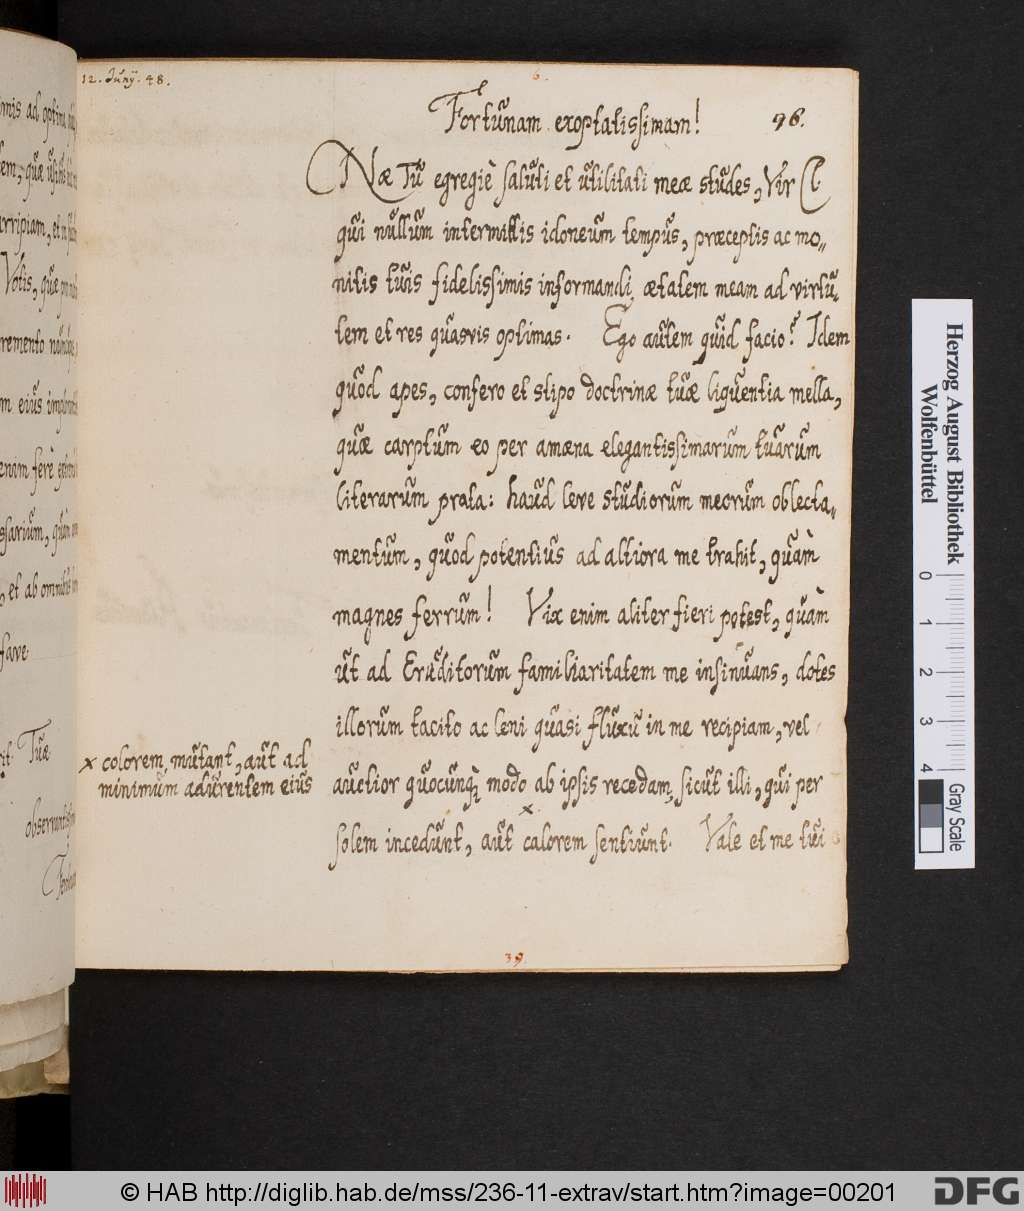 12. Junÿ. 48.
6.
Fortunam exoptatissimam!
96.
Næ Tu egregiè saluti et utilitati meæ studes, Vir Cl.
qui nullum intermittis idoneum tempus, præceptis ac mo„
nitis tuis fidelissimis informandi ætatem meam ad virtu„
tem et res quasvis optimas. Ego autem quid facio? Idem
quod apes, confero et stipo doctrinæ tuæ liquentia mella,
quæ carptum eo per amæna elegantissimarum tuarum
literarum prata: haud leve studiorum meorum oblecta„
mentum, quod potentius ad altiora me trahit, quàm
magnes ferrum! Vix enim aliter fieri potest, quàm
ut ad Eruditorum familiaritatem me insinuans, dotes
illorum tacito ac leni quasi fluxu in me recipiam, vel
auctior quocunq; modo ab ipsis recedam, sicut illi, qui per
x
solem incedunt, aut calorem sentiunt. Vale et me tui
x colorem mutant, aut ad
minimum adurentem eius
39.
imis ad optima
tem, quæ
arripiam, et in
Votis, quæ
cremento
m eius
fere
ssarium, quàm
, et ab omnibus
fave.
Tuæ
Herzog August Bibliothek
Wolfenbüttel
0 1 2 3 4
Gray Scale
© HAB http://diglib.hab.de/mss/236-11-extrav/start.htm?image=00201
DFG